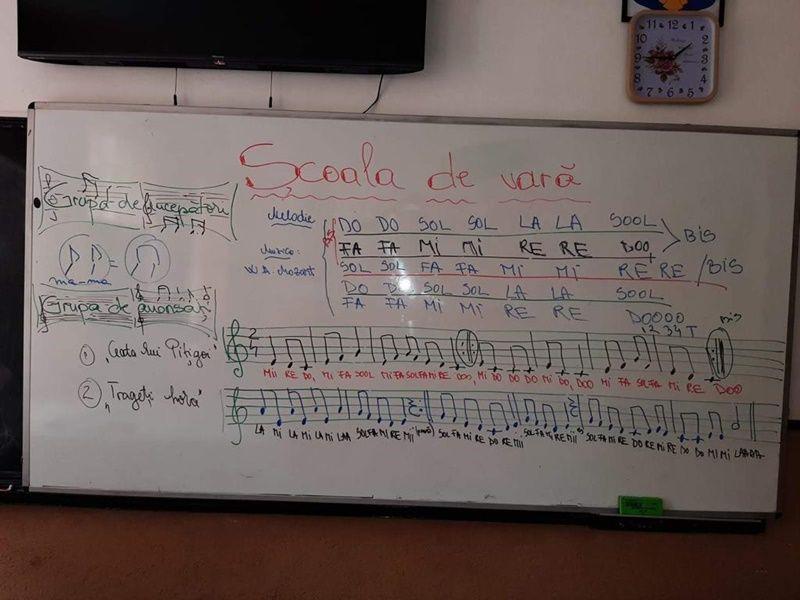 Școala de vară
Grupa de începători
ma-ma
Grupa de avansați
① „Ceata lui Pițigoi"
② „Trageți hora"
Melodie
Muzica:
W. A. Mozart
DO DO SOL SOL LA LA SOOL
BIS
FA FA Mi Mi RE RE DOO
SOL SOL FA FA Mi Mi RE RE
/BIS
DO DO SOL SOL LA LA SOOL
FA FA Mi Mi RE RE DOOOO
1 2 3 4 T
2
4
Mii RE DO, Mi FA SOOL Mi FA SOLFA Mi RE DOO, Mi DO DO DO Mi DO, DOO Mi FA SOLFA Mi RE DOO
LA Mi LA Mi LA Mi LAA SOLFA Mi RE Mii SOL FA Mi RE DO RE Mii SOL FA Mi RE Mii SOLFA Mi RE DO RE Mi RE DO DO Mi Mi
11 12 1
10 2
9 3
8 4
7 6 5